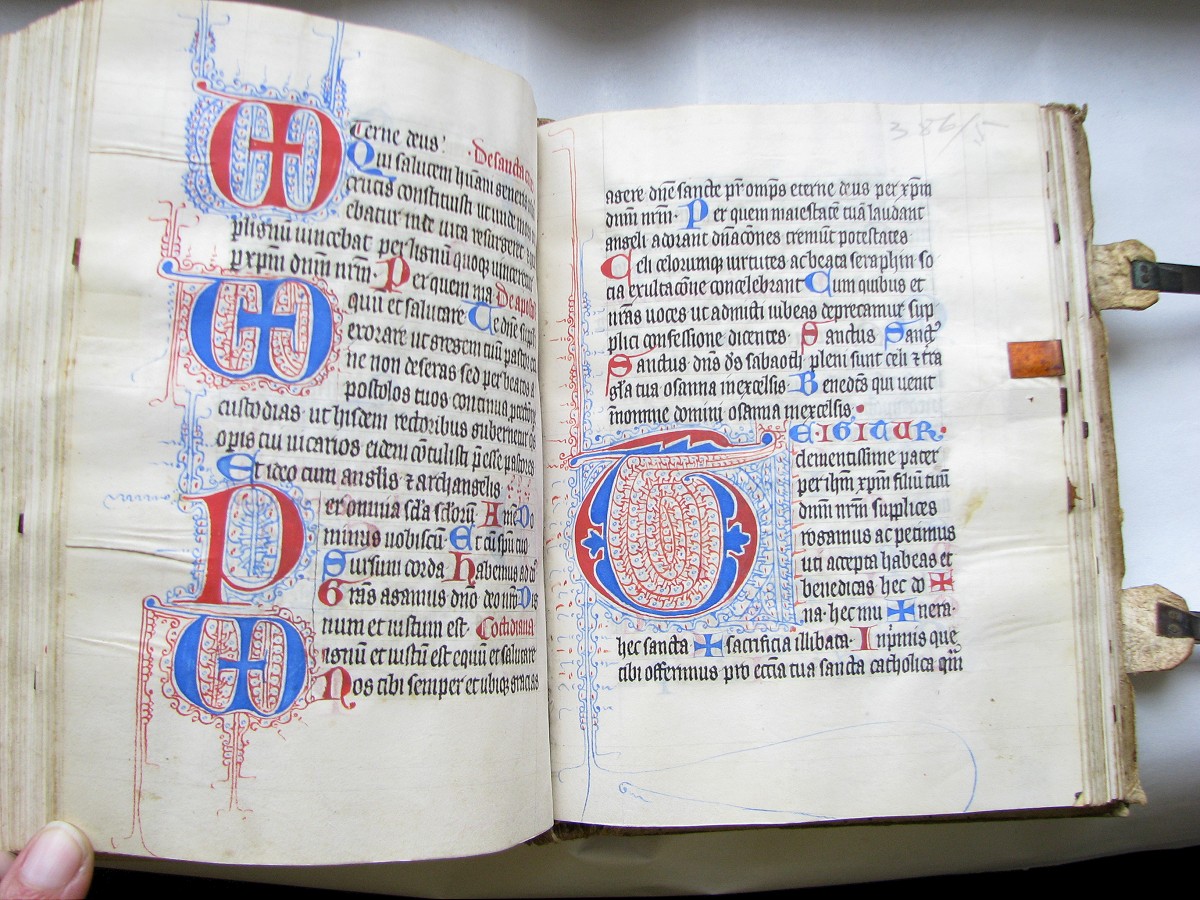 Eterne deus?
De sancta cru
Qui salutem hūani generis
crucis constituisti ut unde mors
ebatur inde uita resurgeret
plignū uincebat per lignū quoq uinceretur
p xpm dnm nrm. Per quem ma
De apostol
quū et salutare Te dne suppl
exorare ut gregem tuū pastor
ne non deseras sed per beatos a
postolos tuos continua protecti
custodias ut hisdem rectoribus gubernetur
opis tui uicarios eidem cōtulisti pesse pastores
Et ideo cum anglis ⁊ archangelis
P er omnia scla sclorū Amē Do
minus uobiscū Et cū spū tuo
Sursum corda Habemus ad
Gras agamus dno deo nro Dig
num et iustum est Cotidiana
ignū et iustū est equū et salutare
Nos tibi semper et ubiq gracias
386/5
agere dne sancte pr omps eterne deus per xpm
dnm nrm. Per quem maiestatē tuā laudant
angeli adorant dnacōnes tremūt potestates
Celi celorumq uirtutes ac beata seraphin so
cia exultacōne concelebrant Cum quibus et
nras uoces ut admitti iubeas deprecamur sup
plici confessione dicentes Sanctus Sanctꝰ
Sanctus dns ds sabaoth pleni sunt celi ⁊ tra
gla tua osanna in excelsis Benedcs qui uenit
in nomine domini osanna in excelsis
TE·IGITUR·
clementissime pater
per ihm xpm filiū tuū
dnm nrm supplices
rogamus ac petimus
uti accepta habeas et
benedicas hec do ✠
na hec mu ✠ nera
hec sancta ✠ sacrificia illibata. Inpmis que
tibi offerimus pro eccta tua sancta catholica qm